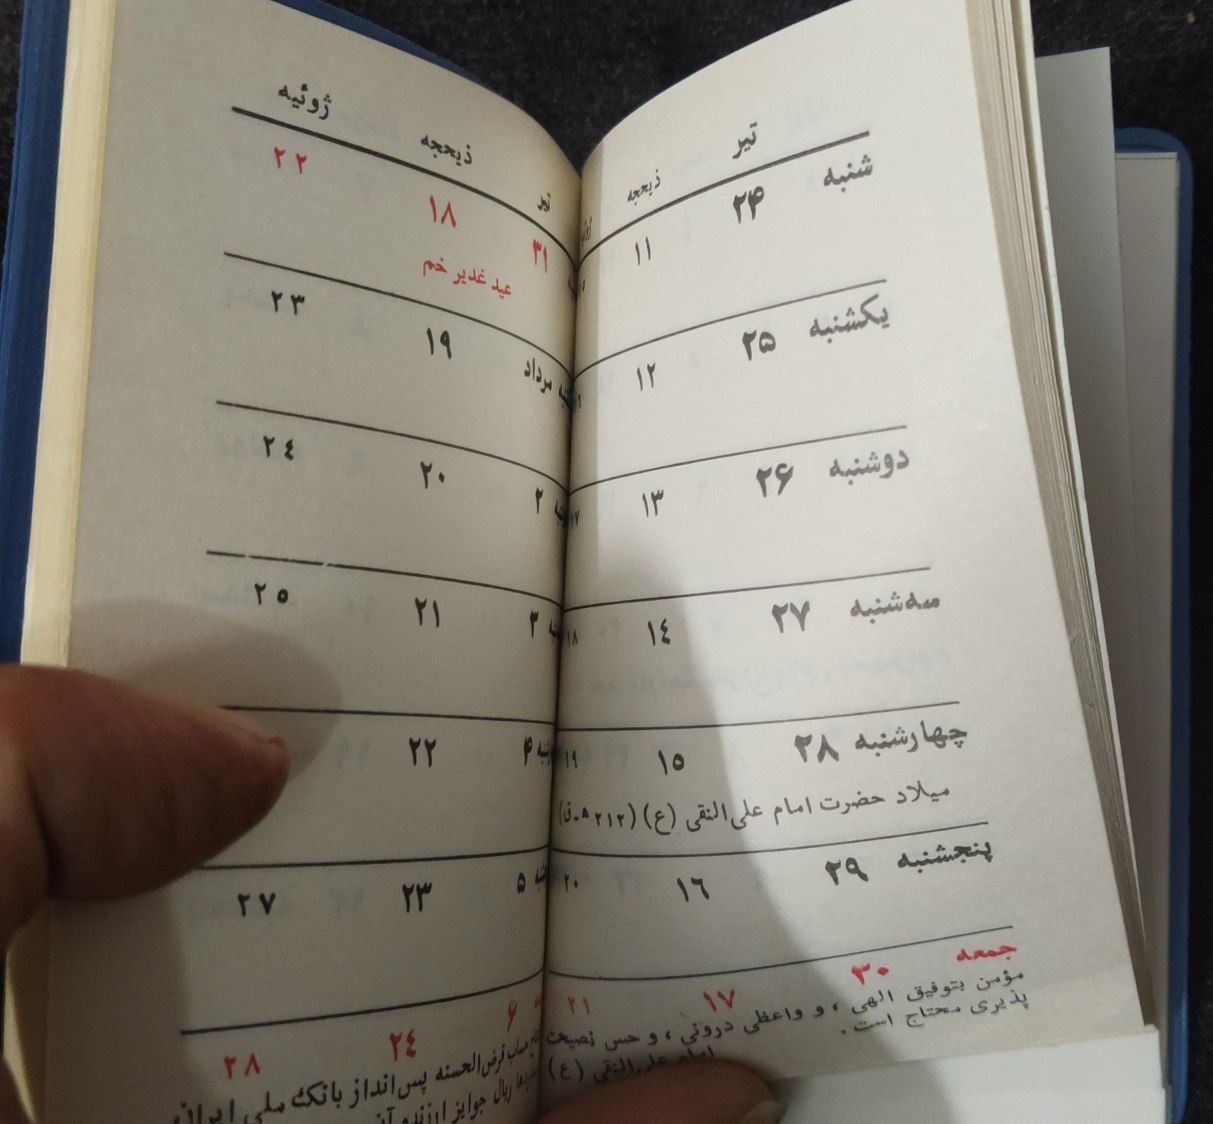 تیر ذیحجه
شنبه ۲۴ ۱۱
یکشنبه ۲۵ ۱۲
دوشنبه ۲۶ ۱۳ ۱۷
سه‌شنبه ۲۷ ۱۴ ۱۸
چهارشنبه ۲۸ ۱۵ ۱۹
میلاد حضرت امام علی‌النقی (ع) (۲۱۲ ه‍.ق)
پنجشنبه ۲۹ ۱۶ ۲۰
جمعه ۳۰ ۱۷ ۲۱
مؤمن بتوفیق الهی ، و واعظی درونی ، و حس نصیحت
پذیری محتاج است .
امام علی‌النقی (ع)
تیر ذیحجه ژوئیه
۳۱ ۱۸ ۲۲
عید غدیر خم
مرداد ۱۹ ۲۳
۲ ۲۰ ۲٤
۳ ۲۱ ۲۵
۴ ۲۲
۵ ۲۳ ۲۷
۶ ۲٤ ۲۸
حساب قرض‌الحسنه پس‌انداز بانک ملی ایران
ریال جوایز ارزنده